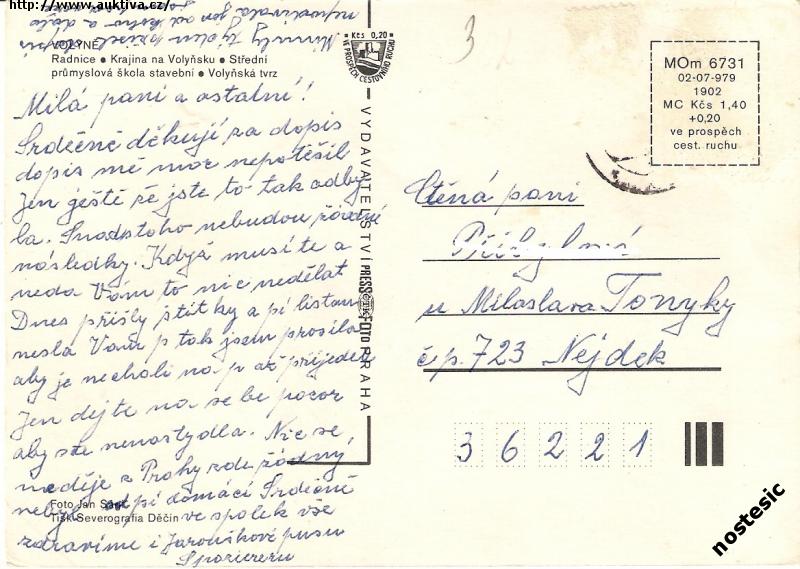 http://www.auktiva.cz/
VOLYNĚ
Radnice ● Krajina na Volyňsku ● Střední
průmyslová škola stavební ● Volyňská tvrz
Milá paní a ostatní!
Srdečně děkuji za dopis
dopis mě moc nepotěšil
Jen ještě že jste to tak odby
la. Snad s toho nebudou žádné
následky. Když musíte a
nedá Vám to nic nedělat
Dnes přišly štítky a pí listono
nesla Vám p tak jsem prosila
aby je nechali na p až přijedete
Jen dejte na sebe pozor
aby ste nenastydla. Nic se
neděje z Prahy zde žádný
nebyl pí domácí Srdečně
ve spolek vše
zdravíme i Jarouškovi pusu
Foto Jan
Tisk Severografia Děčín
Kčs 0,20
VE PROSPĚCH CESTOVNÍHO RUCHU
VYDAVATELSTVÍ PRESSFOTO PRAHA
ČTK
3
MOm 6731
02-07-979
1902
MC Kčs 1,40
+0,20
ve prospěch
cest. ruchu
Ctěná paní
u Miloslava Tonyky
čp. 723 Nejdek
36221
nostesic